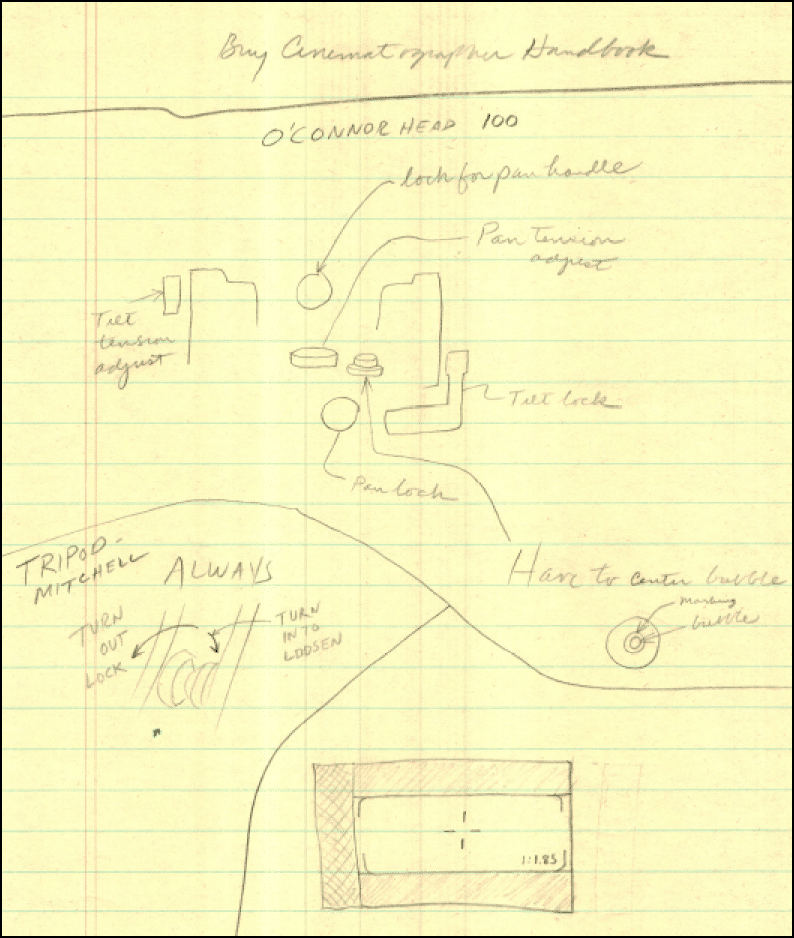 Buy Cinematographer Handbook
O'CONNOR HEAD 100
lock for pan handle
Pan Tension
adjust
Tilt
tension
adjust
Tilt lock
Pan lock
TRIPOD-
MITCHELL
ALWAYS
Have to center bubble
marking
bubble
TURN
OUT
LOCK
TURN
IN TO
LOOSEN
1:1.85